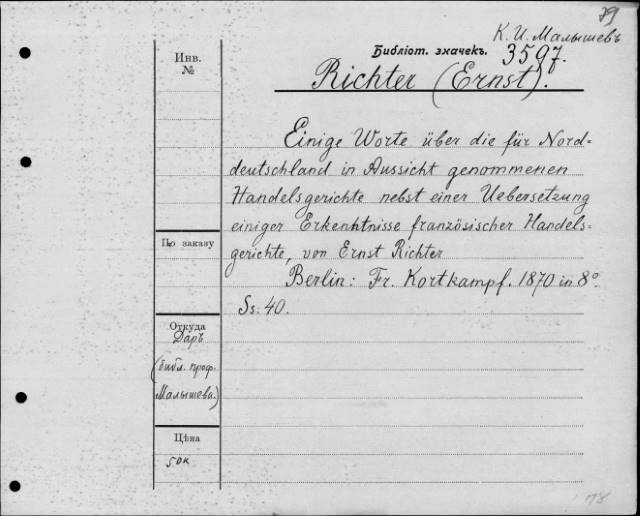 79
К. И. Малышевъ
Библіот. значекъ. 3597.
Richter (Ernst).
Инв.
№
Einige Worte über die für Nord=
deutschland in Aussicht genommenen
Handelsgerichte nebst einer Uebersetzung
einiger Erkenntnisse französischer Handels=
gerichte, von Ernst Richter
Berlin: Fr. Kortkampf. 1870 in 8°.
Ss. 40.
По заказу
Откуда
Даръ
(библ. проф.
Малышева.)
Цѣна
50к
78